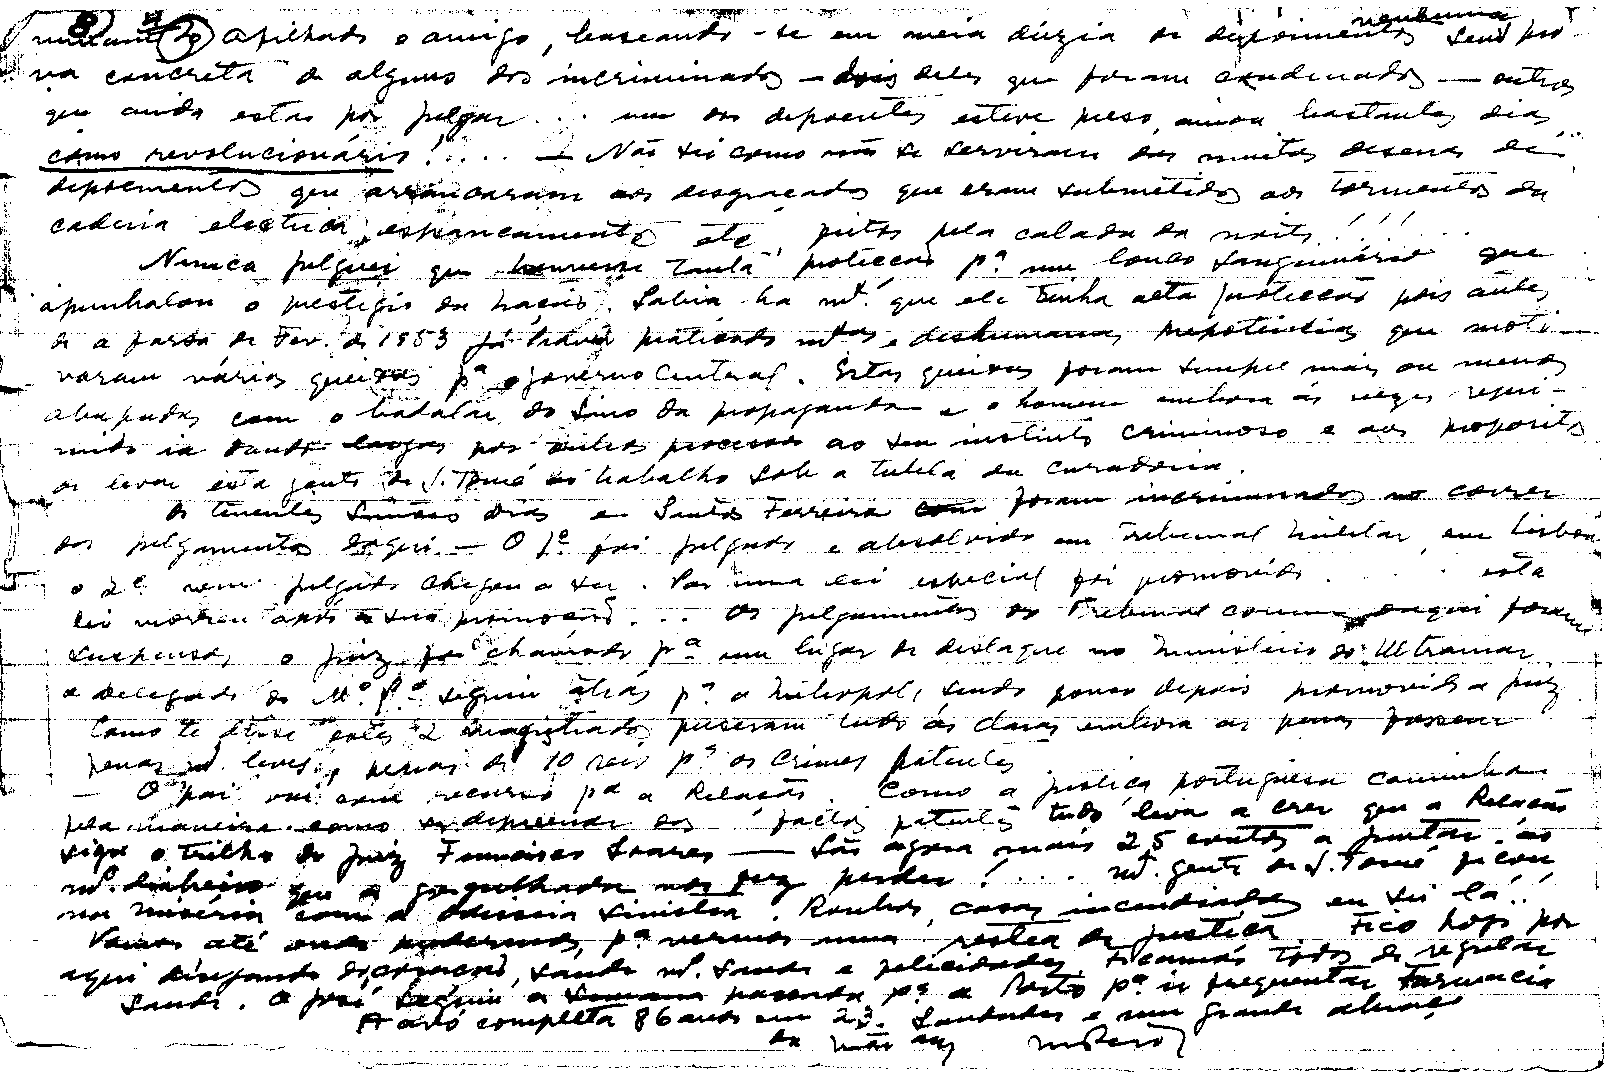 afilhado e amigo, baseando-se em meia dúzia de depoimentos sem nenhuma pro-
va concreta de alguns dos incriminados — dois deles que foram condenados — outros
que ainda estão por julgar... um dos depoentes esteve preso, ainda bastantes dias,
como revolucionário!.... — Não sei como não se serviram das muitas desenas de
depoimentos que arrancaram aos desgraçados que eram submetidos aos tormentos da
cadeira electrica, espancamentos etc, feitos pela calada da noite!!!...
Nunca julguei que houvesse tanta protecção pª um louco sanguinário que
apunhalou o prestigio da nação. Sabia ha mtº. que ele tinha alta protecção pois antes
de a farsa de Fev. de 1953 já havia praticado mtas e deshumanas prepotências que moti-
varam várias queixas pª o governo Central. Estas queixas foram sempre mais ou menos
abafadas com o badalar do sino da propaganda e o homem embora ás vezes repri-
mido ia dando largas por outros processos ao seu instinto criminoso e aos propositos
de levar esta gente de S. Tomé ao trabalho sob a tutela da curadoria.
Os tenentes Simão Dias e Santos Ferreira foram incriminados no correr
dos julgamentos daqui. — O 1º foi julgado e absolvido em Tribunal Militar, em Lisboa
o 2º nem julgado chegou a ser. Por uma lei especial foi promovido..... esta
lei morreu após a sua promoção.... Os julgamentos do Tribunal comum daqui foram
suspensos, o juiz foi chamado pª um lugar de destaque no Ministério do Ultramar
o delegado do Mº. Pº. seguiu atrás pª a Metropole, sendo pouco depois promovido a juiz
Como te disse estes 2 magistrados puseram tudo ás claras embora as penas fossem
penas mtº. leves, penas de 10 reis pª os crimes patentes
— O pai vai com recurso pª a Relação. Como a justiça portuguesa caminha
pela maneira como se depreende dos factos patentes tudo leva a crer que a Relação
siga o trilho do juiz Francisco Soares — São agora mais 25 contos a juntar ao
mtº. dinheiro que a gorgulhada nos fez perder!.... mtª. gente de S. Tomé ficou
na miséria com a odisseia sinistra. Roubos, casas incendiadas eu sei lá!..
Vamos até onde pudermos, pª vermos uma réstea de justiça Fico hoje por
aqui desejando do coração, saude mtª. saude e felicidades. Ficamos todos de regular
saude. O José seguiu a semana passada pª o Porto pª ir frequentar Farmacia
A avó completa 86 anos em 23. Saudades e um grande abraço
da mãe